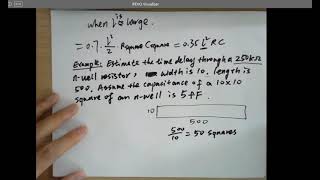 when l is large.
= 0.7 · l²/2 Rsquare Csquare = 0.35 l² RC
Example: Estimate the time delay through a 250KΩ
n-well resistor, width is 10. length is
500. Assume the capacitance of a 10x10
square of an n-well is 5fF.
10
500
500/10 = 50 squares